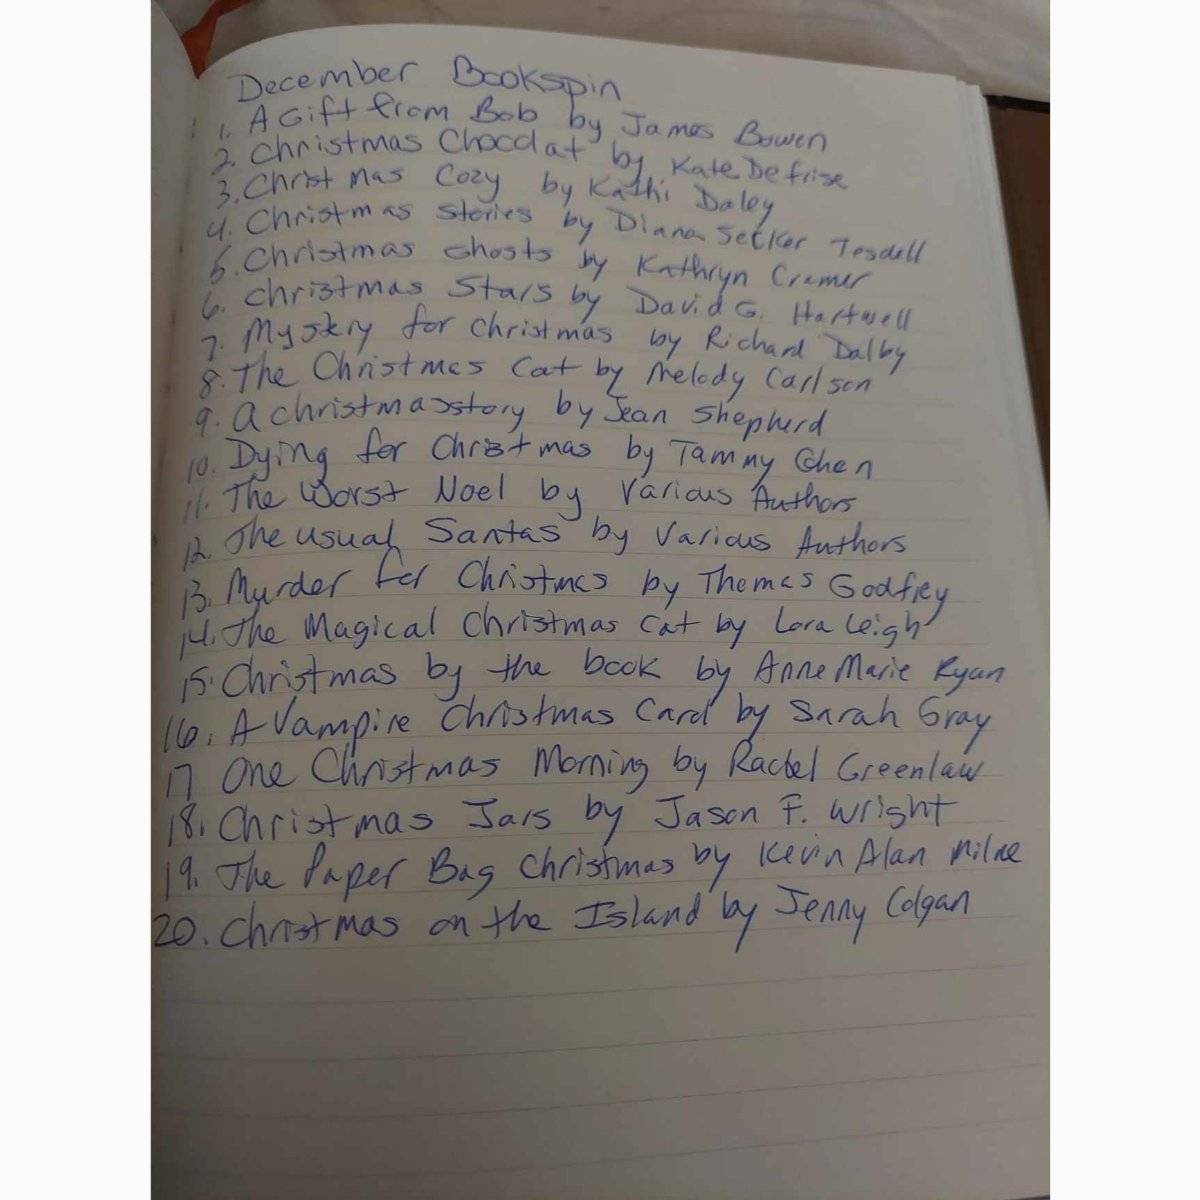 December Bookspin
1. A Gift from Bob by James Bowen
2. Christmas Chocolat by Kate Defrise
3. Christmas Cozy by Kathi Daley
4. Christmas stories by Diana Secker Tesdell
5. Christmas Ghosts by Kathryn Cramer
6. Christmas Stars by David G. Hartwell
7. Mystery for Christmas by Richard Dalby
8. The Christmas Cat by Melody Carlson
9. A christmas story by Jean Shepherd
10. Dying for Christmas by Tammy Cohen
11. The Worst Noel by Various Authors
12. The usual Santas by Various Authors
13. Murder for Christmas by Thomas Godfrey
14. The Magical Christmas Cat by Lora Leigh
15. Christmas by the book by Anne Marie Ryan
16. A Vampire Christmas Carol by Sarah Gray
17 One Christmas Morning by Rachel Greenlaw
18. Christmas Jars by Jason F. Wright
19. The Paper Bag Christmas by Kevin Alan Milne
20. Christmas on the Island by Jenny Colgan